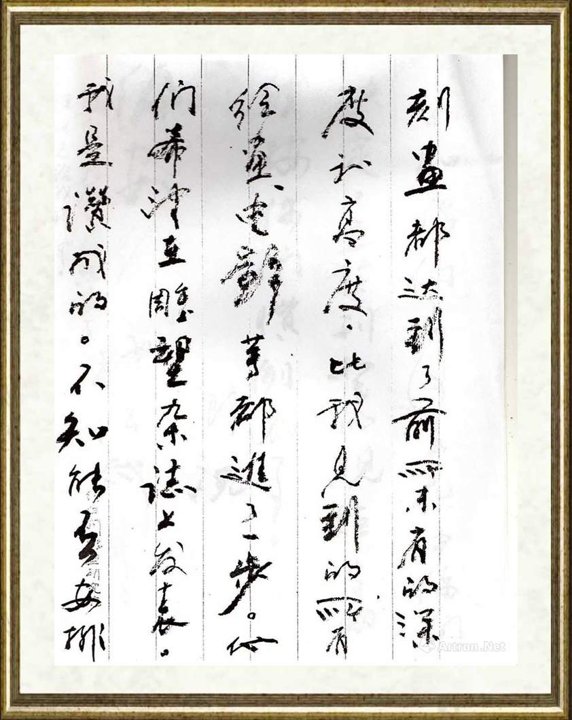 刻畫都达到了前所未有的深
度和高度、比我見到的所有
绘畫、电影等都進了一步。他
们希望在雕塑杂誌上发表。
我是讚成的。不知能否安排
Artron.Net